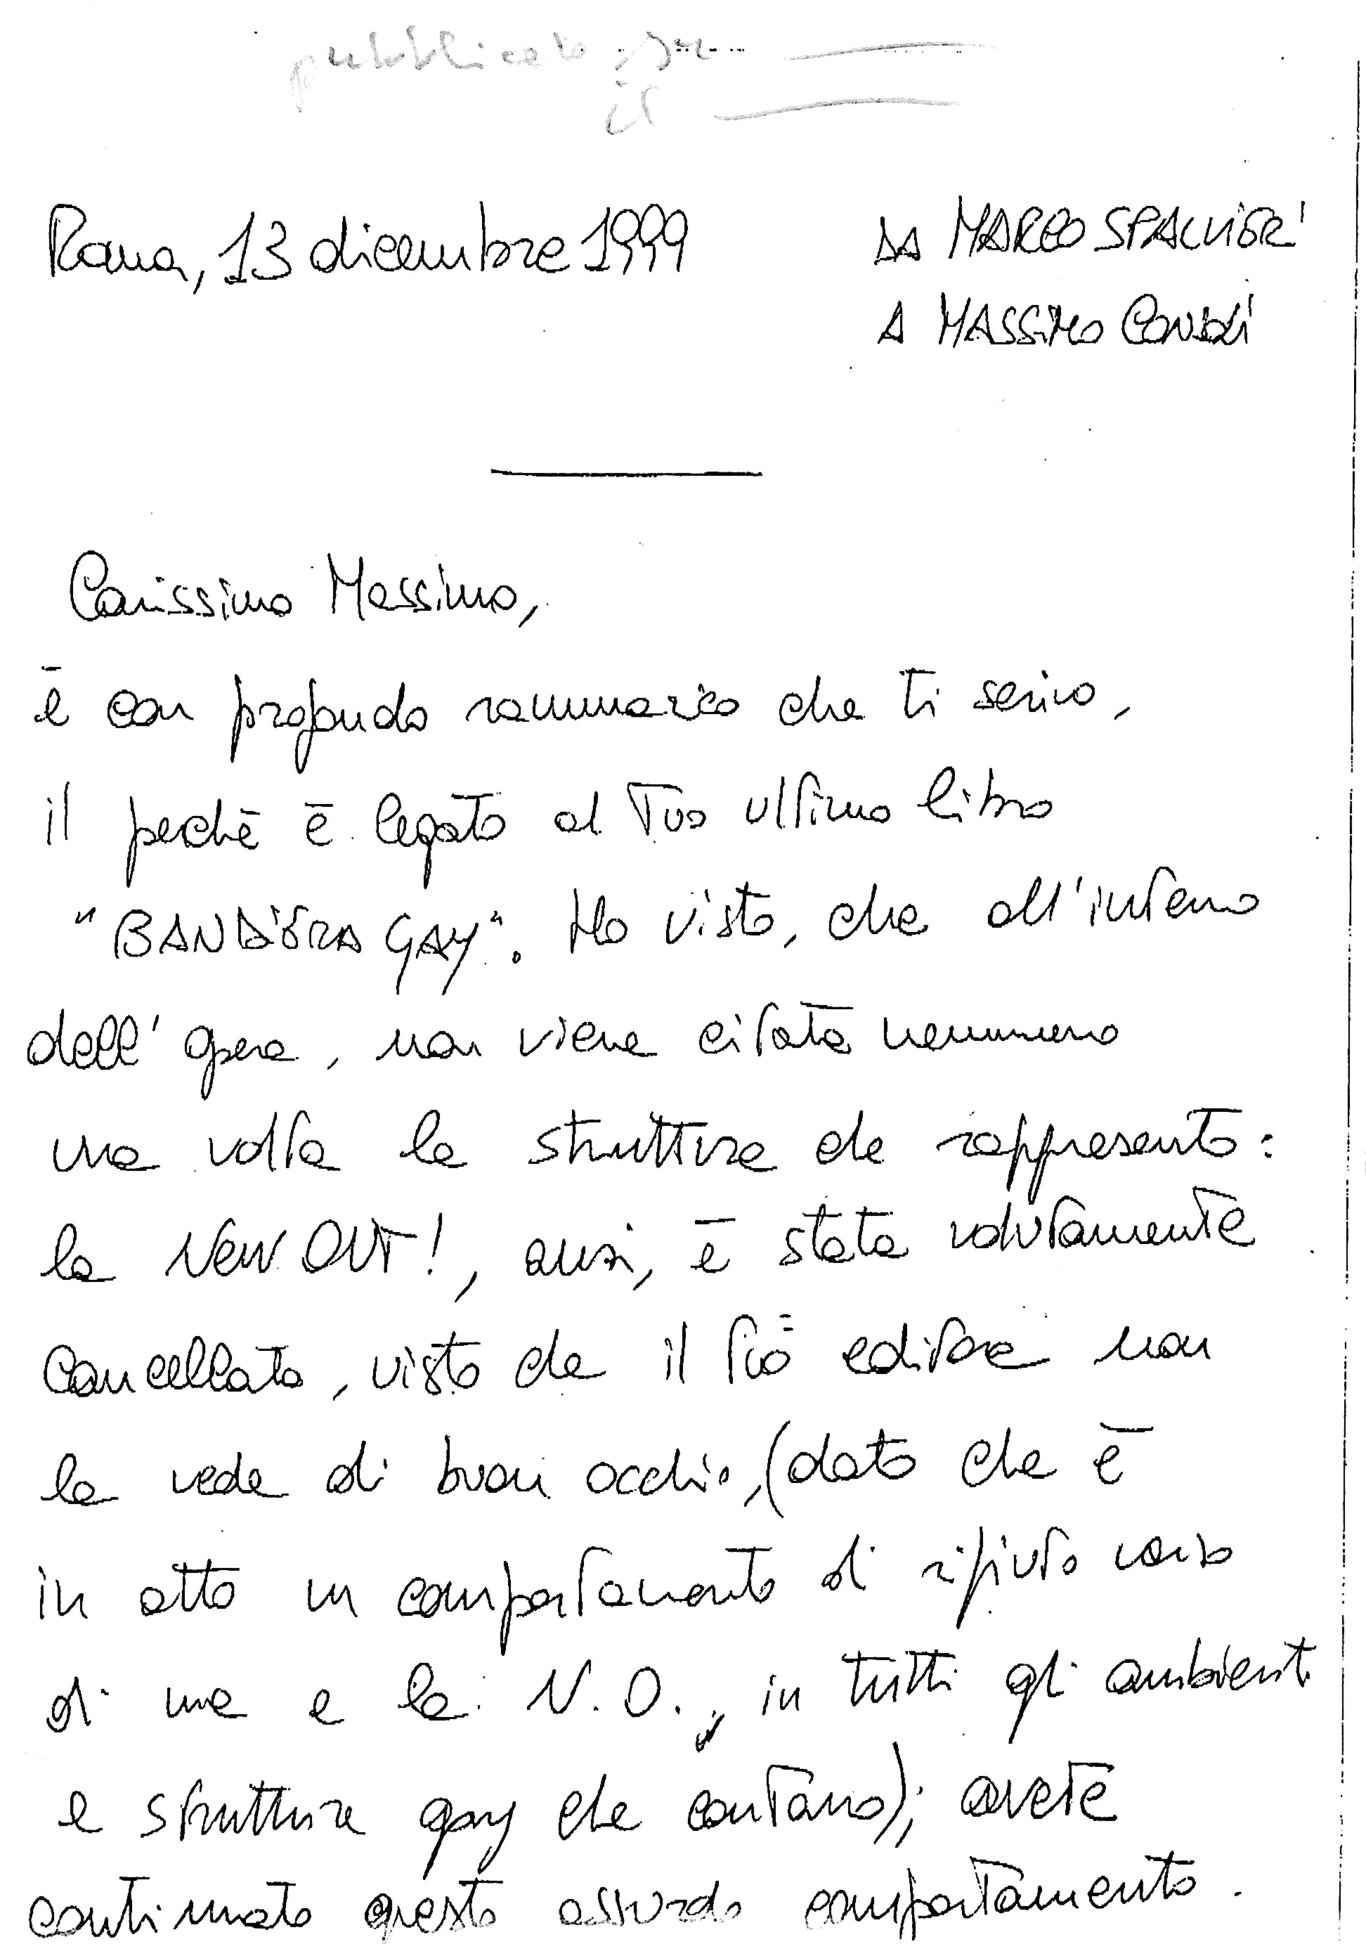 pubblicato su
il
Roma, 13 dicembre 1999
DA MARCO SPALVIERI
A MASSIMO CONSOLI
Carissimo Massimo,
è con profondo rammarico che ti scrivo,
il perchè è legato al Tuo ultimo libro
"BANDIERA GAY". Ho visto, che all'interno
dell'opera, non viene citata nemmeno
una volta la struttura che rappresento:
la NEW OUT!, anzi, è stata volutamente
cancellata, visto che il Tuo editore non
la vede di buon occhio, (dato che è
in atto un comportamento di rifiuto verso
di me e la N.O., in tutti gli ambienti
e strutture gay che contano); avete
continuato questo assurdo comportamento.